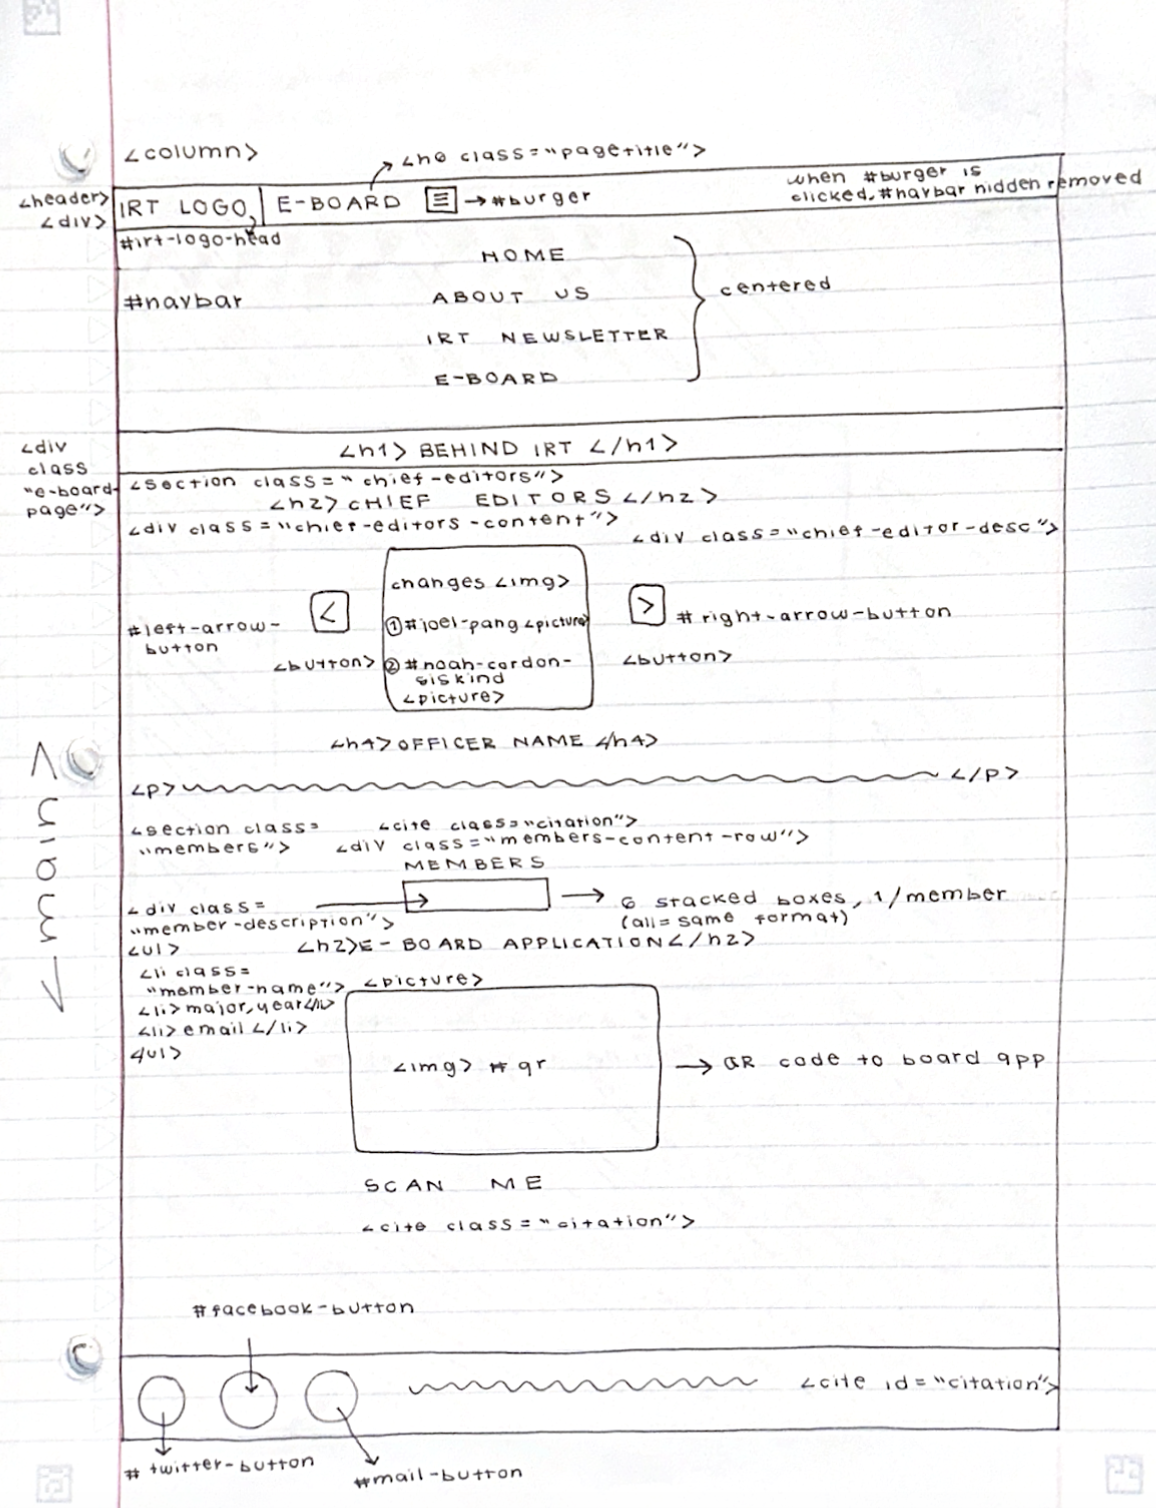 <column>
<h0 class="pagetitle">
<header>
<div>
IRT LOGO
E-BOARD
→#burger
when #burger is
clicked, #navbar hidden removed
#irt-logo-head
#navbar
HOME
ABOUT US
IRT NEWSLETTER
E-BOARD
centered
<div
class
"e-board-
page">
<h1> BEHIND IRT </h1>
<section class="chief-editors">
<h2> CHIEF EDITORS </h2>
<div class="chief-editors-content">
<div class="chief-editor-desc">
#left-arrow-
button
<
<button>
changes <img>
① #joel-pang <picture>
② #noah-cordon-
siskind
<picture>
>
#right-arrow-button
<button>
<h4> OFFICER NAME </h4>
<p>
</p>
<section class=
"members">
<cite class="citation">
<div class="members-content-row">
MEMBERS
<div class=
"member-description">
→ 6 stacked boxes, 1/member
(all = same format)
<ul>
<h2>E-BOARD APPLICATION</h2>
<li class=
"member-name">
<li>major, year</li>
<li>email</li>
</ul>
<picture>
<img> #qr
→ QR code to board app
SCAN ME
<cite class="citation">
#facebook-button
<cite id="citation">
#twitter-button
#mail-button
<main>